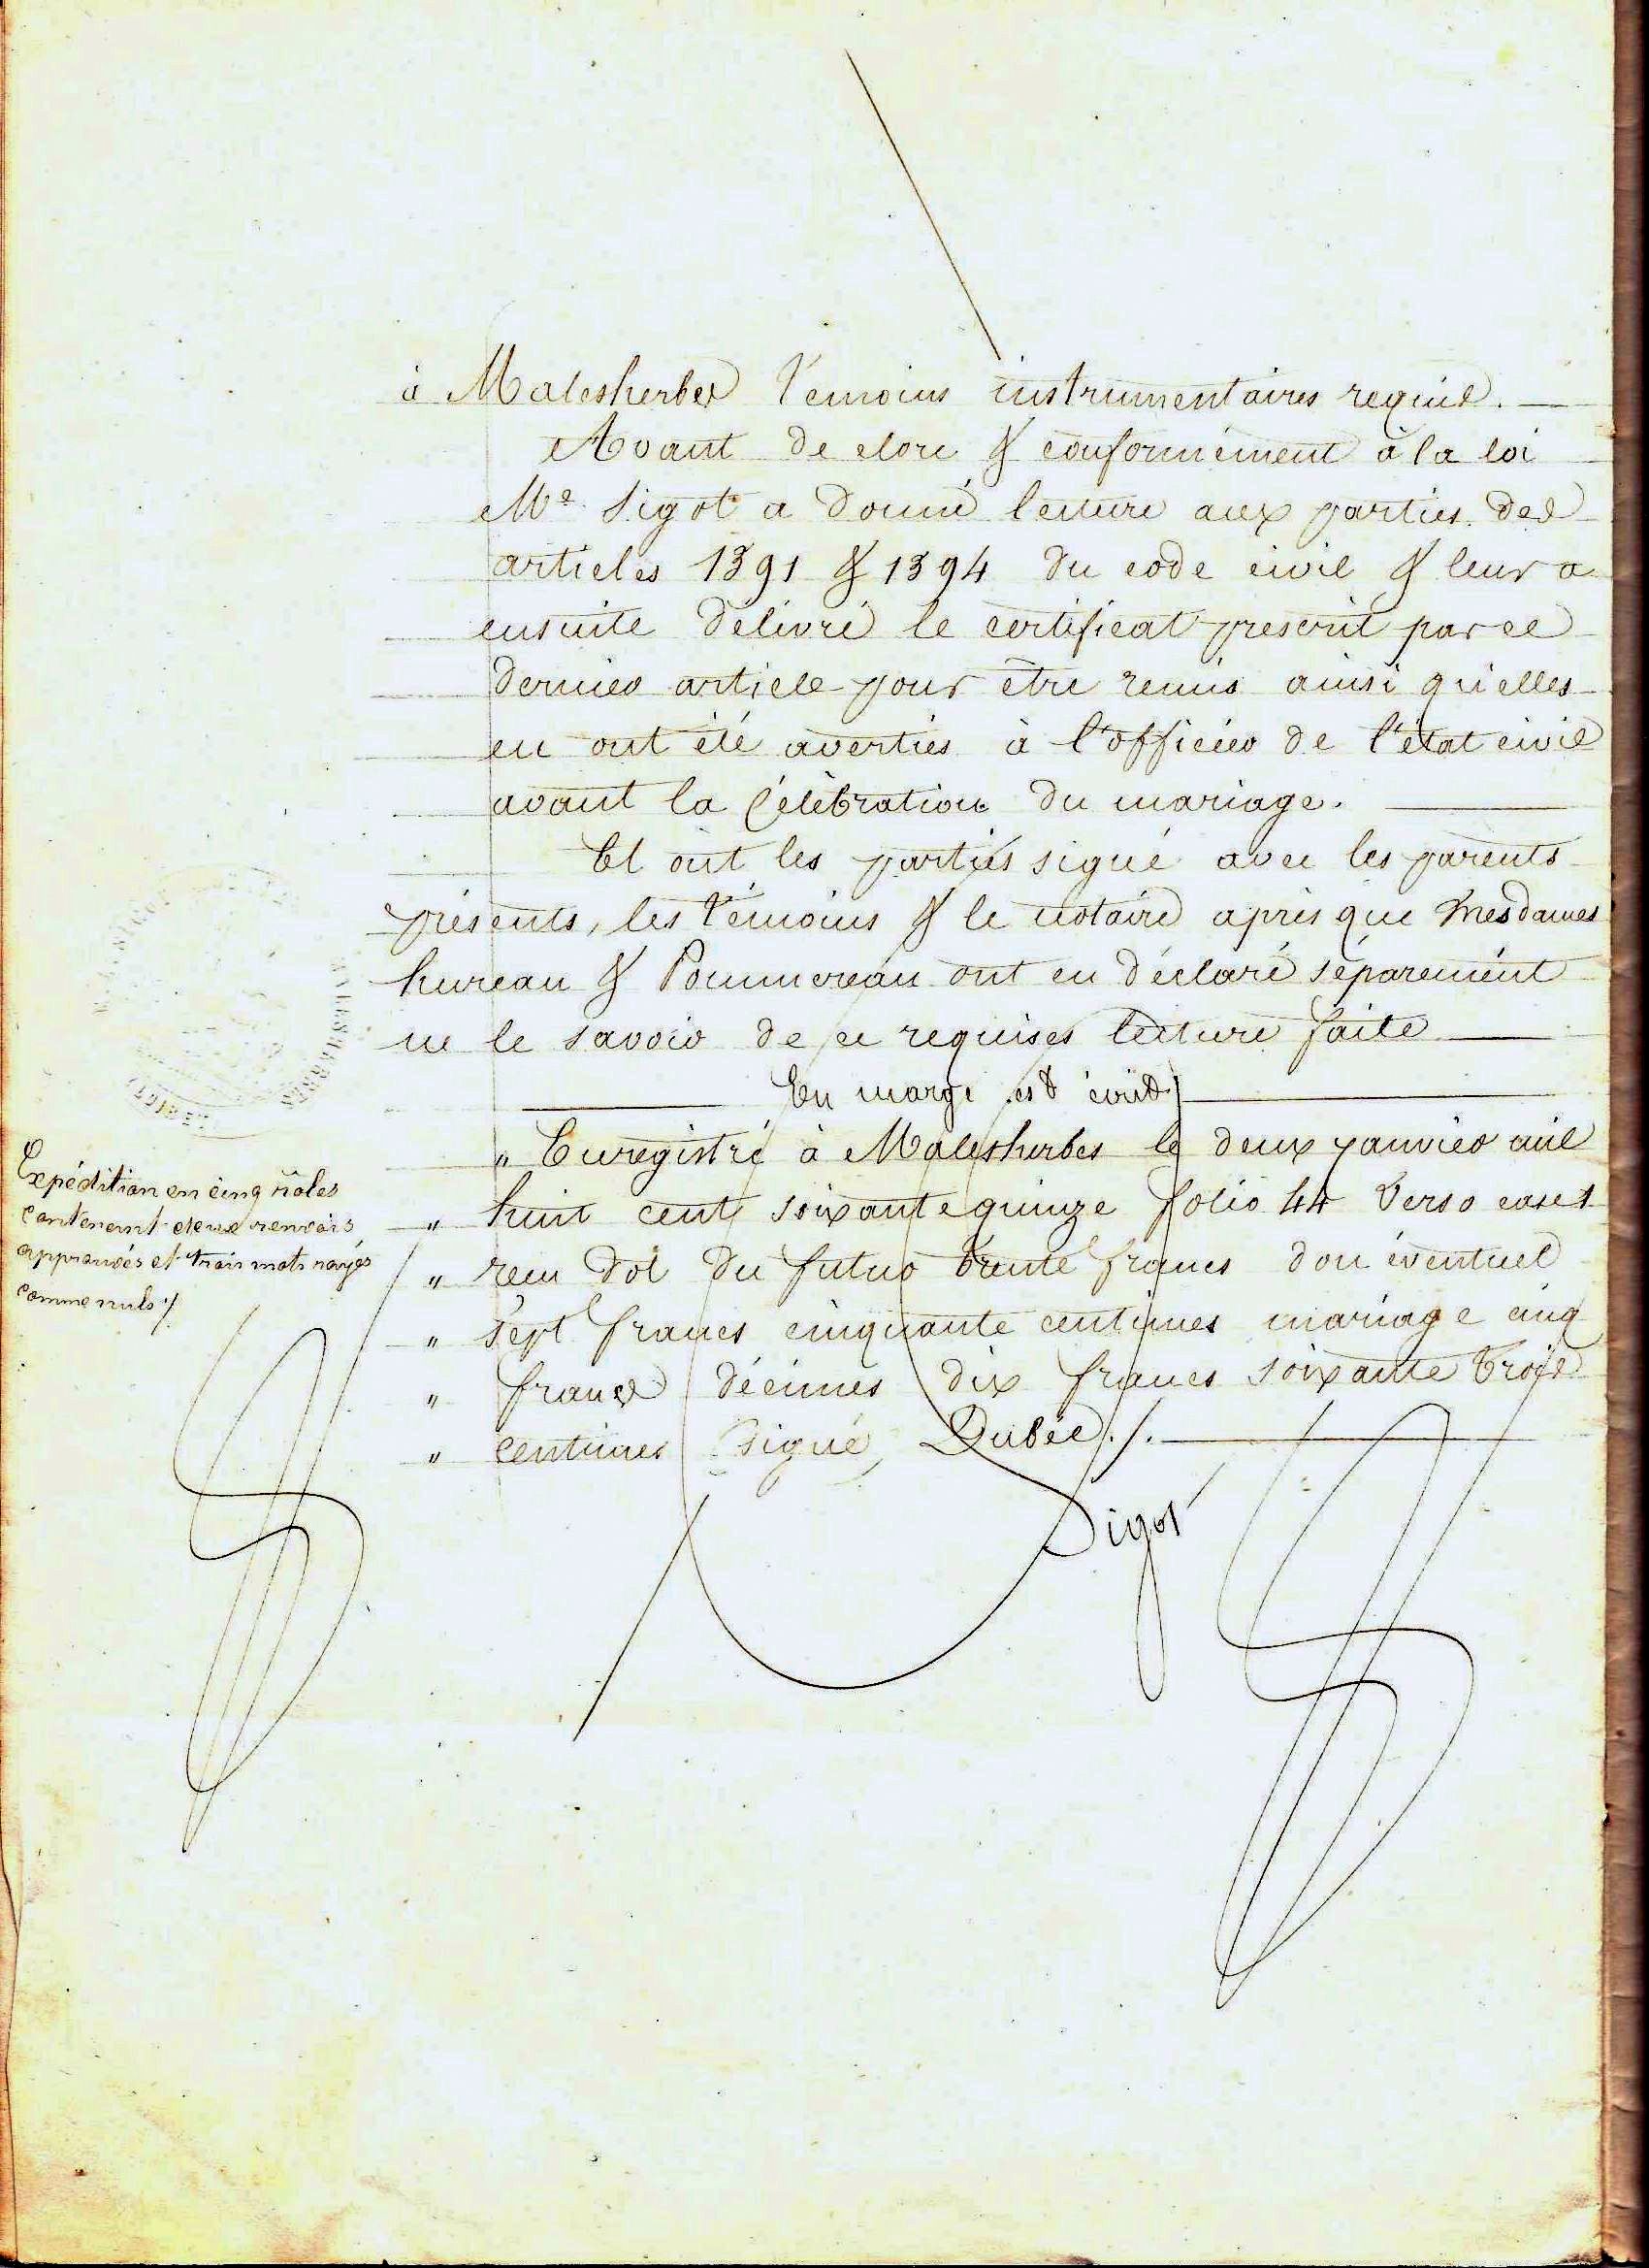 à Malesherbes témoins instrumentaires requis.
Avant de clore & conformément à la loi
Me Sigot a donné lecture aux parties des
articles 1391 & 1394 du code civil & leur a
ensuite délivré le certificat prescrit par ce
dernier article pour être remis ainsi qu'elles
en ont été averties à l'officier de l'état civil
avant la célébration du mariage.
Et ont les parties signé avec les parents
présents, les témoins & le notaire après que Mesdames
hureau & Pommereau ont en déclaré séparément
ne le savoir de ce requises lecture faite
En marge est écrit
" Enregistré à Malesherbes le deux janvier mil
" huit cent soixante quinze folio 44 verso case 1
" reçu dot du futur trente francs don éventuel
" sept francs cinquante centimes mariage cinq
" francs décimes dix francs soixante trois
" centimes signé Dubée ./.
Sigot
MALESHERBES
(LOIRET)
Expédition en cinq rôles
contenant deux renvois
approuvés et trois mots rayés
comme nuls ./.